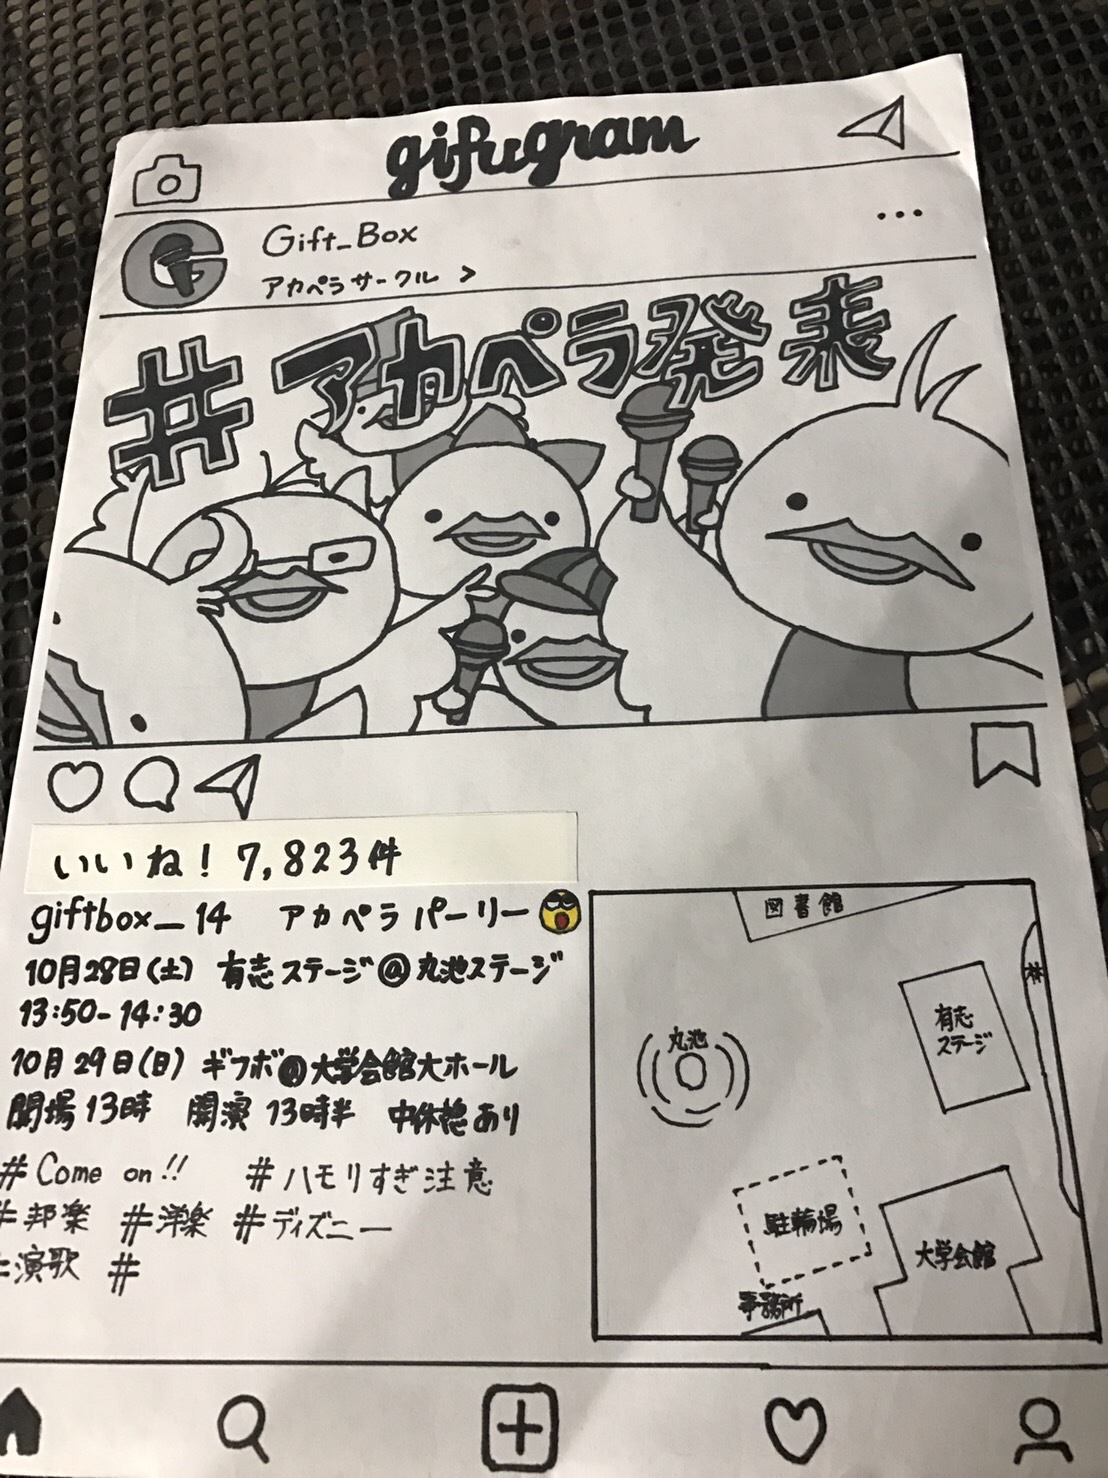 gifugram
Gift_Box
...
アカペラサークル >
#アカペラ発表
いいね！7,823件
giftbox_14 アカペラパーリー
10月28日(土) 有志ステージ@丸池ステージ
13:50-14:30
10月29日(日) ギフボ@大学会館大ホール
開場13時 開演13時半 中休憩あり
#Come on!! #ハモりすぎ注意
#邦楽 #洋楽 #ディズニー
#演歌 #
図書館
林
有志
ステージ
丸池
駐輪場
大学会館
事務所